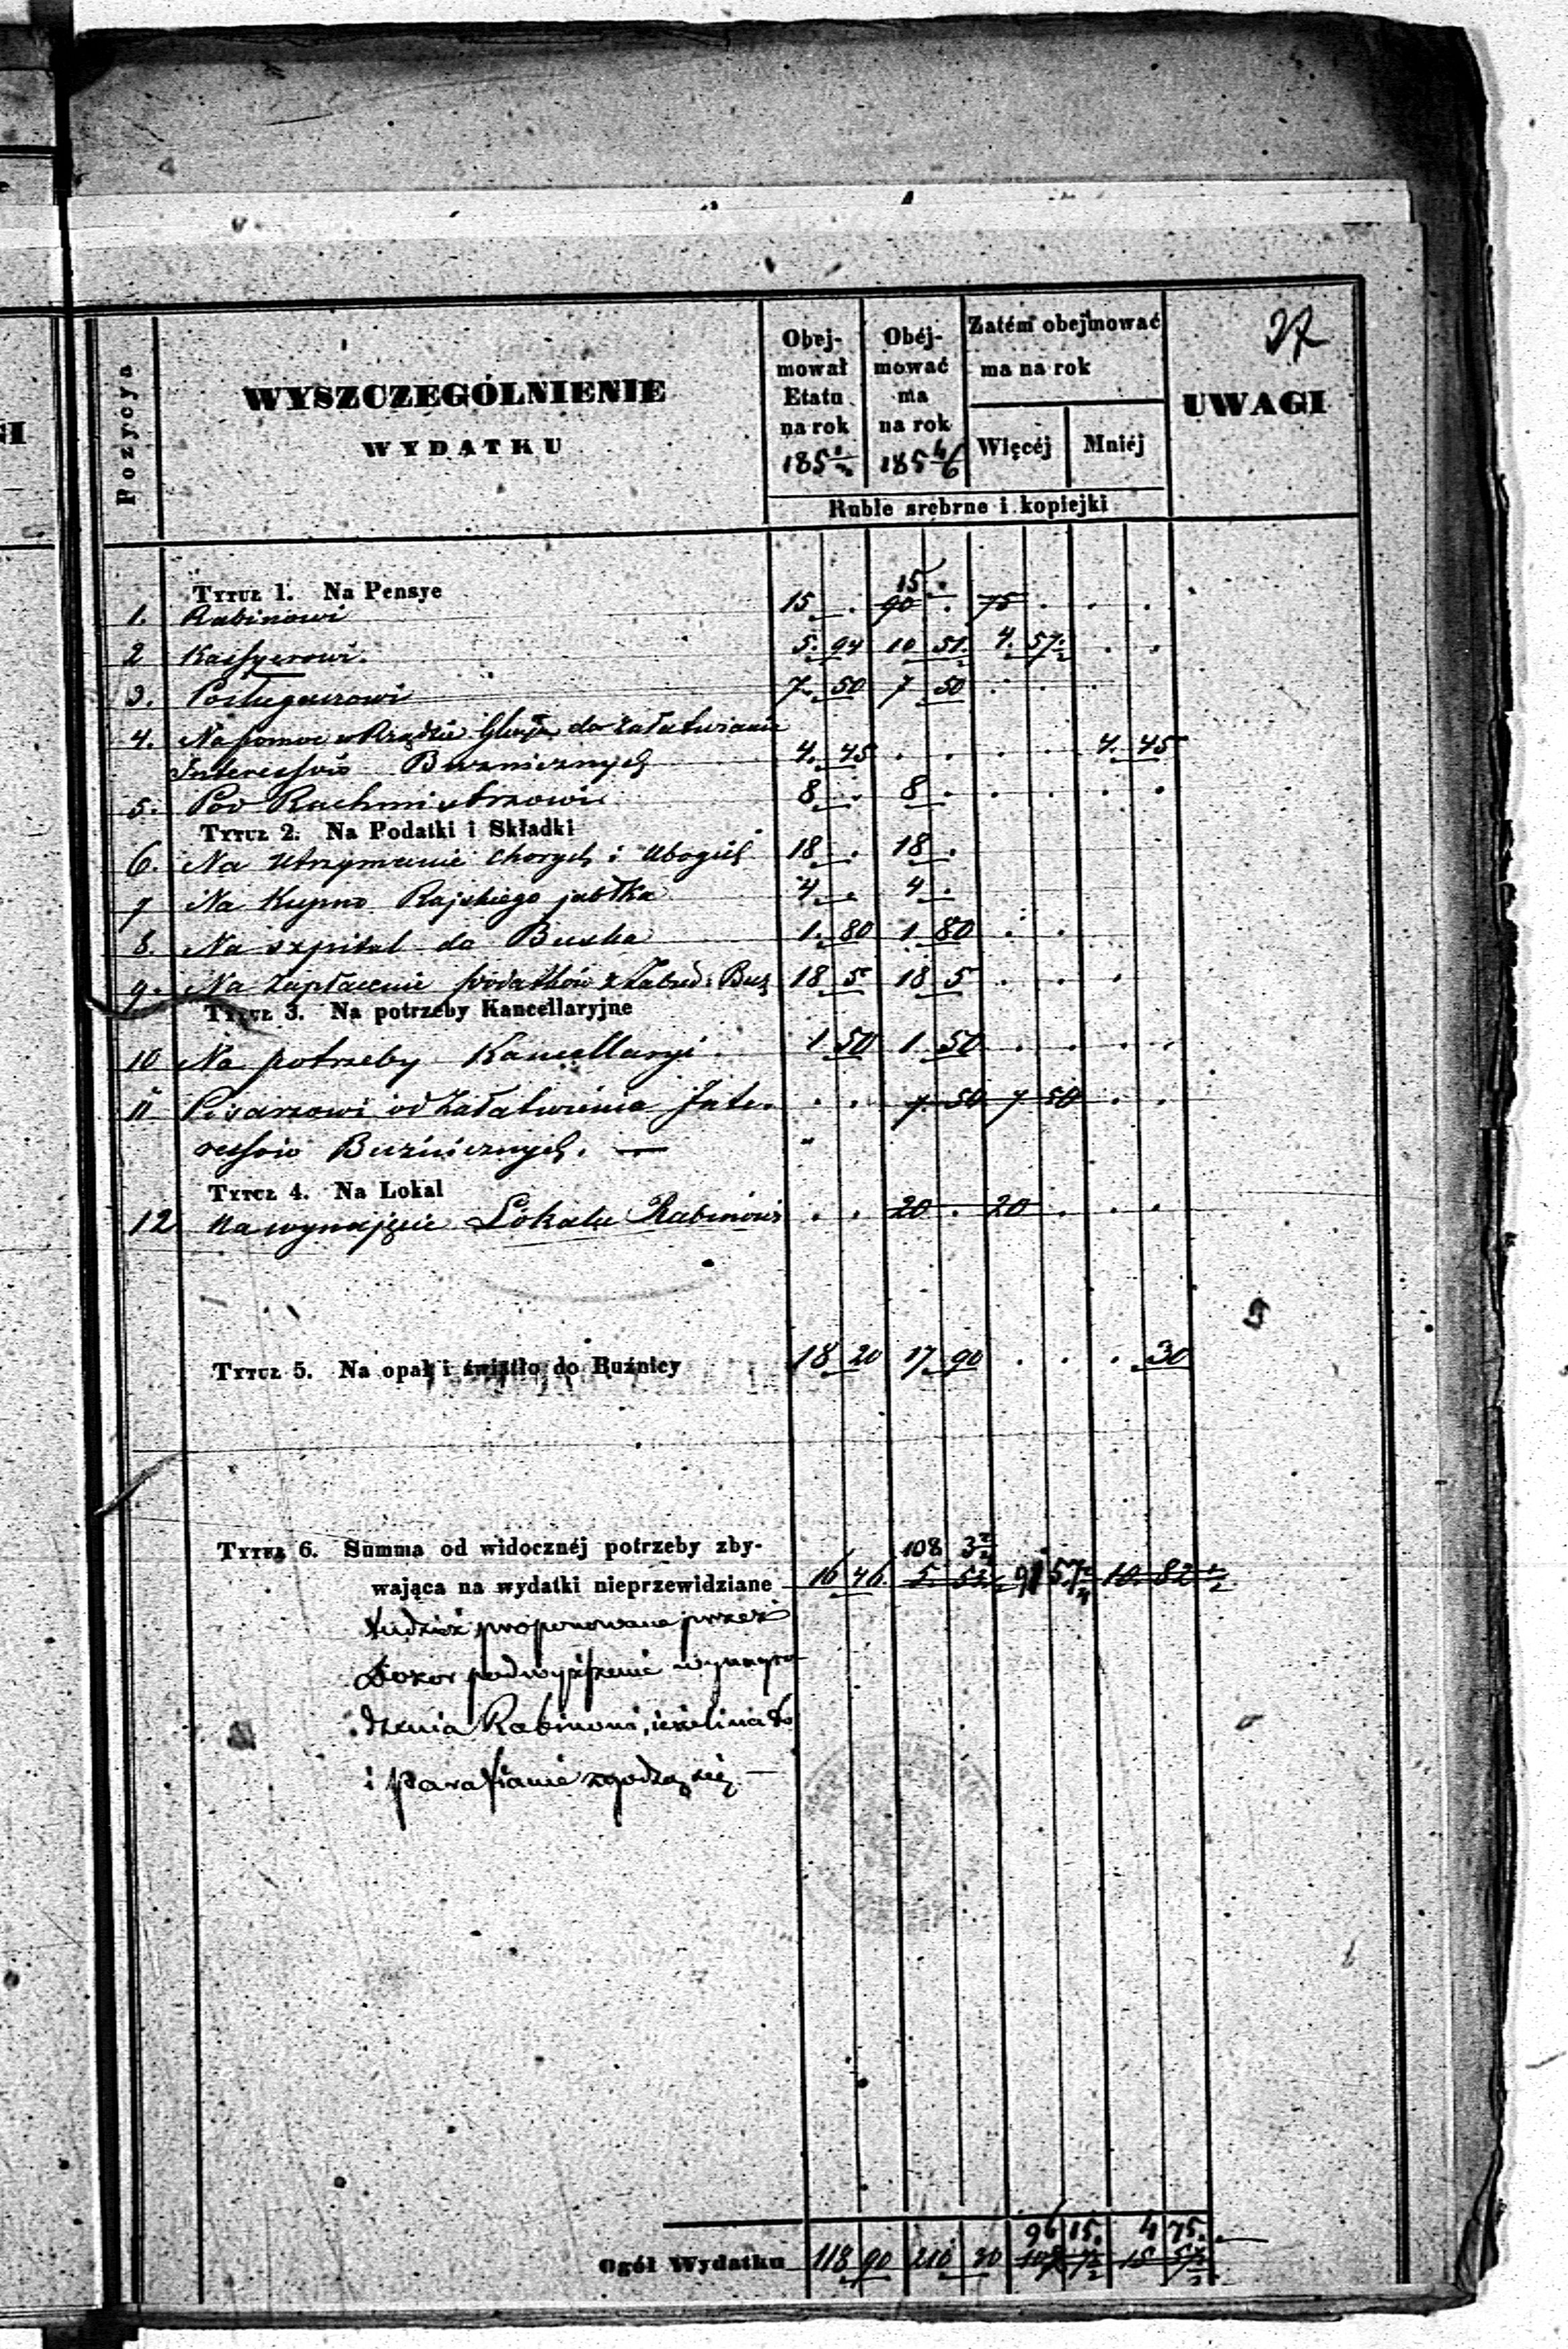 27
Pozycya
WYSZCZEGÓLNIENIE
WYDATKU
Obej-
mował
Etatu
na rok
185
Obéj-
mować
ma
na rok
185 4/6
Zatém obejmować
ma na rok
Więcéj
Mniéj
UWAGI
GI
Ruble srebrne i kopiejki
Tytuł 1. Na Pensye
15 .
1. Rabinowi 15 . 90 . 75 . . .
2 Kassyerowi. 5. 94 10 51 1/2 4. 57 1/2 . .
3. Posługaczowi 7. 50 7 50 . .
4. Na pomoc w Rządzie do załatwiania
Interessów Buznicznych 4. 45 . . . . 4. 45
5. Pod Rachmistrzowi 8 . 8 . . . . .
Tytuł 2. Na Podatki i Składki
6. Na utrzymanie chorych i ubogich 18 . 18 .
7 Na Kupno Rajskiego jabłka 4 . 4 .
8. Na szpital do Buska 1. 80 1. 80 . .
9. Na Zapłacenie podatków z Zabud: Buz 18 5 18 5 . . .
Tytuł 3. Na potrzeby Kancellaryjne
10 Na potrzeby Kancellaryi. 1 50 1. 50 . . . .
11 Pisarzowi od Załatwienia Inte- . . 7 50 7 50 . .
ressów Buźnicznych. —
Tytuł 4. Na Lokal
12 Na wynajęcie Lokalu Rabinowi . . 20 . 20 . . .
Tytuł 5. Na opał i światło do Buźnicy 18 20 17 90 . . . 30
Tytuł 6. Summa od widocznéj potrzeby zby- 108 3 1/2
wająca na wydatki nieprzewidziane 16 46. 5. 53 1/2 91 57 1/2 10. 82 1/2
tudzież proponowane przez
Dozor podwyższenie wynagro
dzenia Rabinowi, ieżeli na to
i Parafianie zgodzą się —
96 15. 4 75.
Ogół Wydatku 118 90 210 30